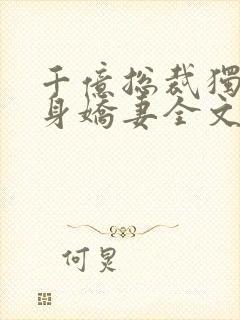 千億總裁獨
身嬌妻全文
何炅